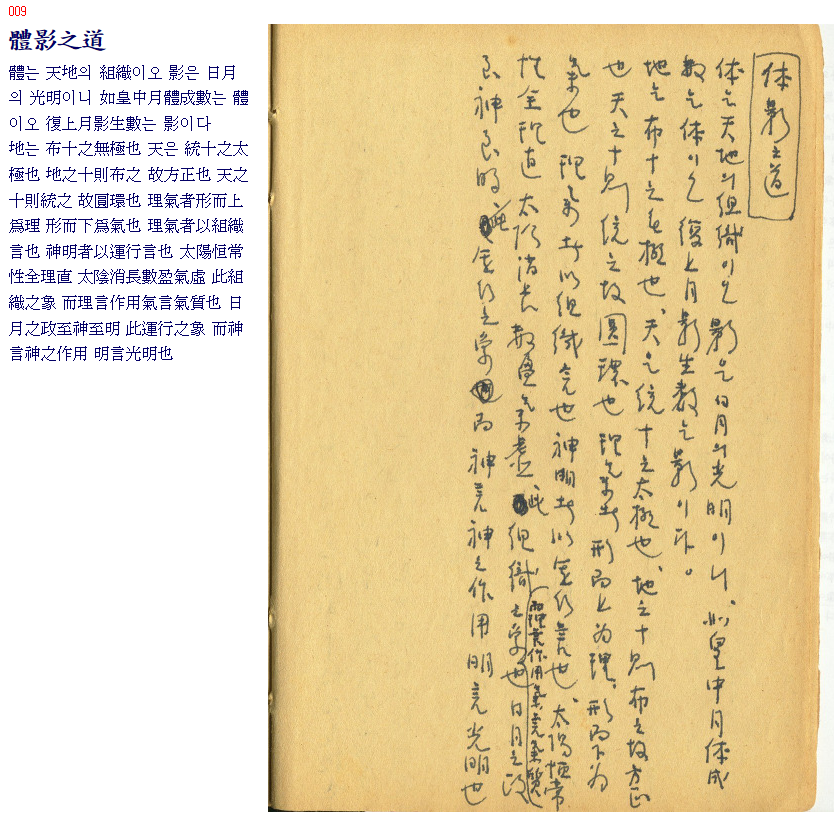 009
體影之道
體는 天地의 組織이오 影은 日月
의 光明이니 如皇中月體成數는 體
이오 復上月影生數는 影이다
地는 布十之無極也 天은 統十之太
極也 地之十則布之 故方正也 天之
十則統之 故圓環也 理氣者形而上
爲理 形而下爲氣也 理氣者以組織
言也 神明者以運行言也 太陽恒常
性全理直 太陰消長數盈氣虛 此組
織之象 而理言作用氣言氣質也 日
月之政至神至明 此運行之象 而神
言神之作用 明言光明也
体影之道
体는 天地의 組織이오 影은 日月의 光明이니, 如皇中月体成
数는 体이오 復上月影生数는 影이다。
地는 布十之无極也、天은 統十之太極也、地之十則布之故方正
也 天之十則統之故圓環也 理氣者 形而上为理、形而下为
氣也 理氣者以組織言也 神明者以運行言也、太陽恒常
性全理直 太陰消長 数盈氣虛 此組織之象也 日月之政
而理言作用氣言氣質
至神至明 此運行之象 而神言神之作用 明言光明也